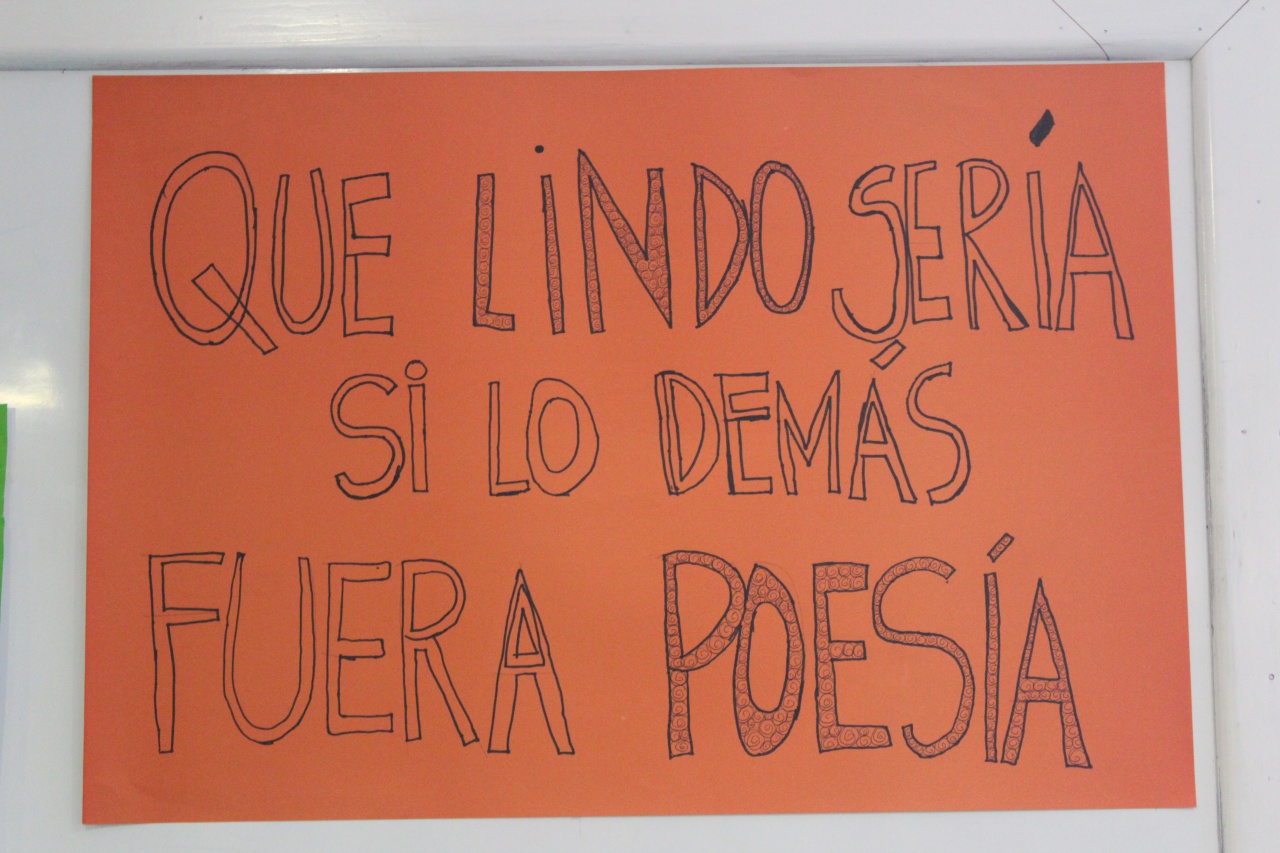 QUE LiNDO SERÍA
Si LO DEMÁS
FUERA POESÍA